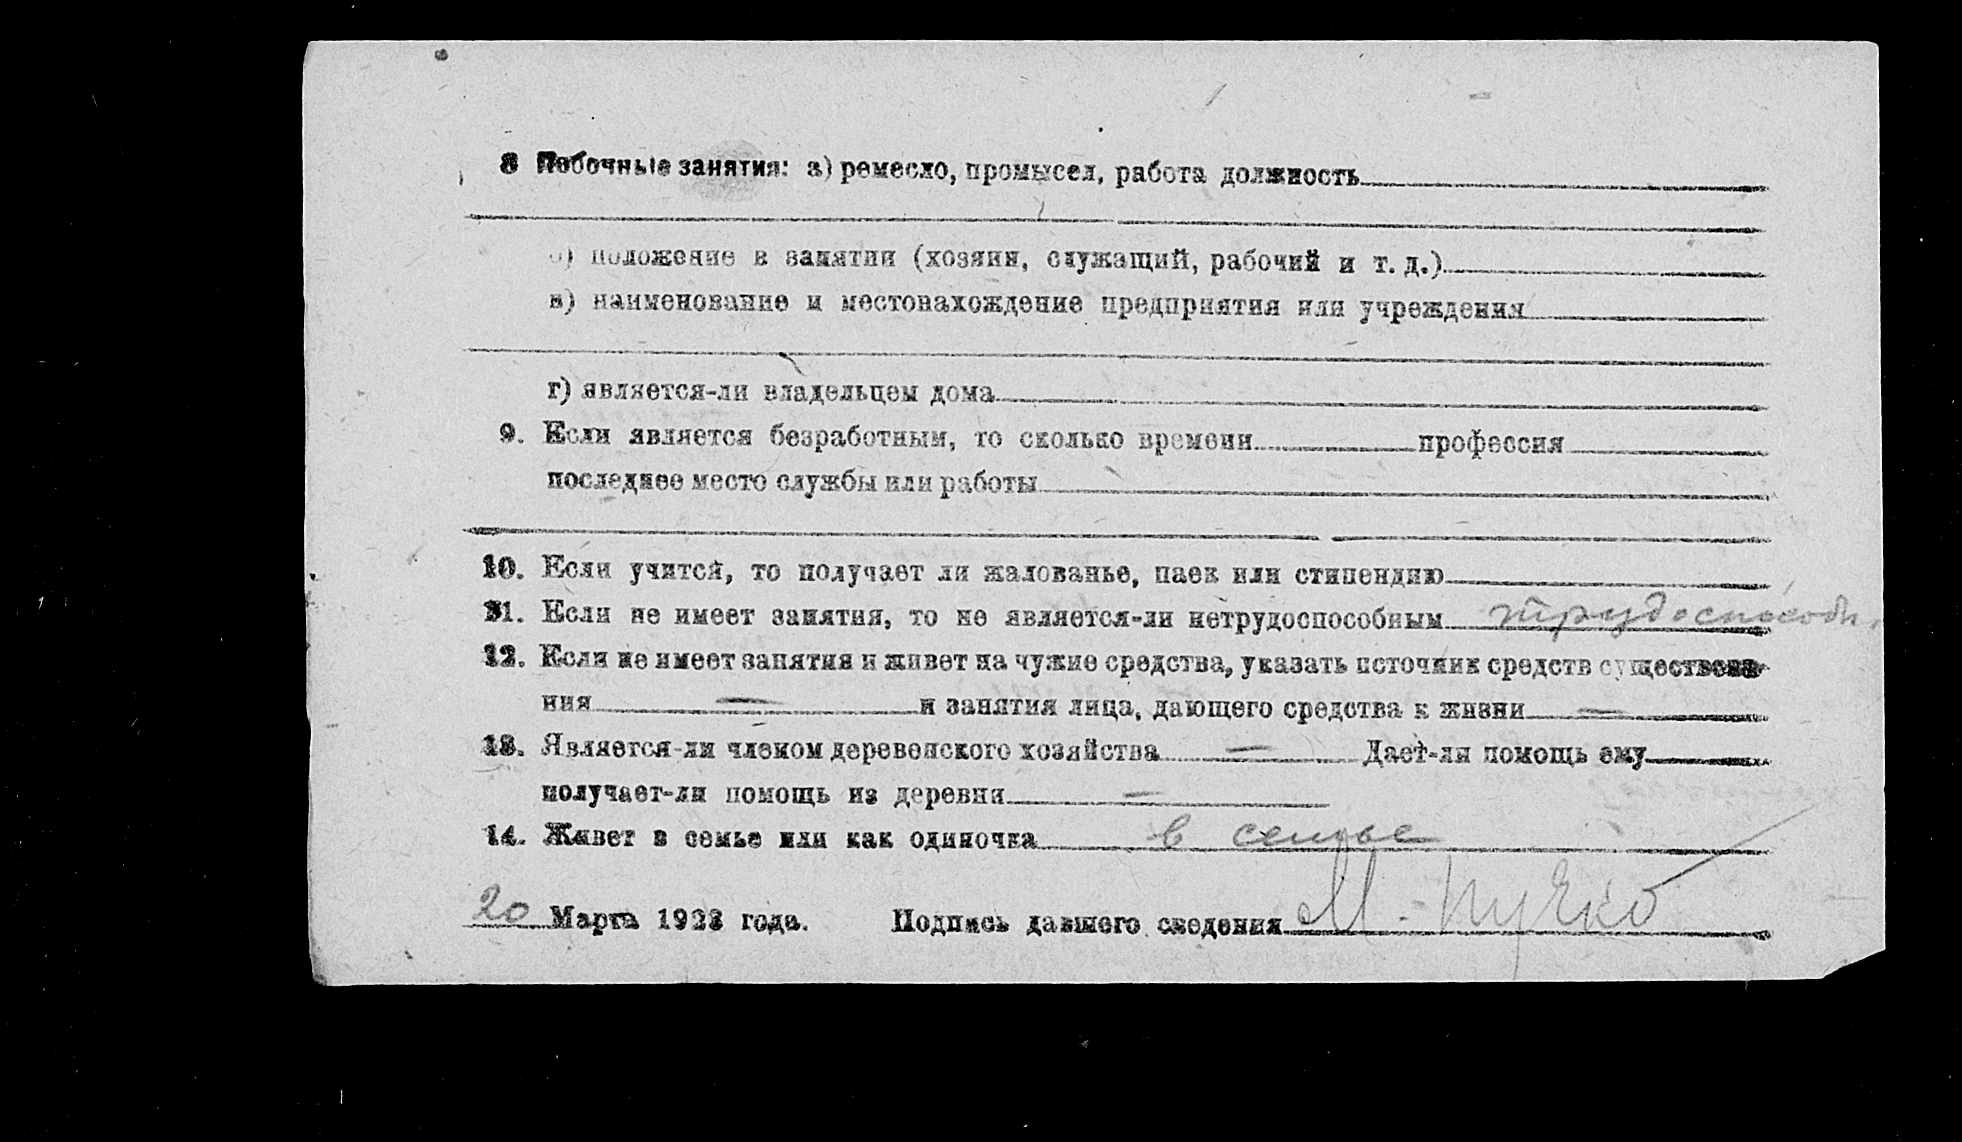 8 Побочные занятия: а) ремесло, промысел, работа должность
б) положение в занятии (хозяин, служащий, рабочий и т. д.)
в) наименование и местонахождение предприятия или учреждения
г) является-ли владельцем дома
9. Если является безработным, то сколько времени профессия
последнее место службы или работы
10. Если учится, то получает ли жалованье, паек или стипендию
11. Если не имеет занятия, то не является-ли нетрудоспособным трудоспособн.
12. Если не имеет занятия и живет на чужие средства, указать источник средств существова-
ния — и занятия лица, дающего средства к жизни —
13. Является-ли членом деревенского хозяйства — Дает-ли помощь ему
получает-ли помощь из деревни —
14. Живет в семье или как одиночка в семье
20 Марта 1923 года. Подпись давшего сведения М. Пучко